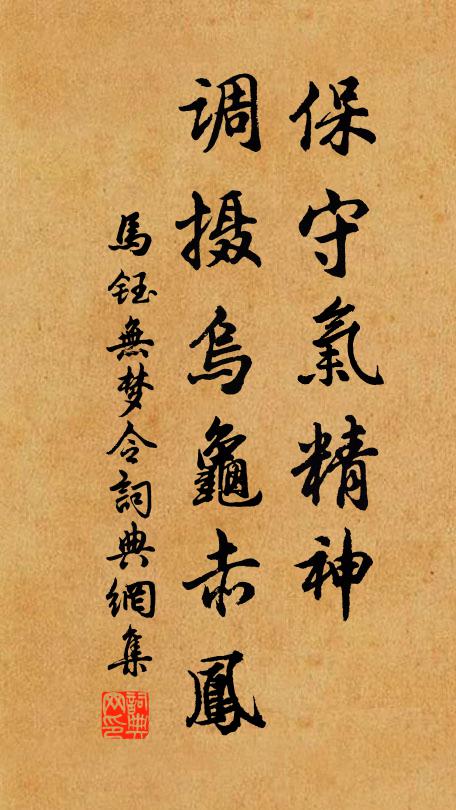 保守氣精神
调摄烏龜赤鳳
馬鈺無梦令詞典網集
詞典网印